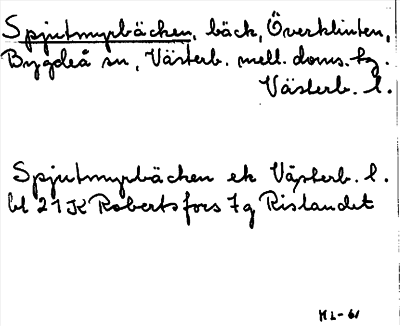 Spjutmyrbäcken, bäck, Överklinten,
Bygdeå sn, Västerb. mell. doms. tg.
Västerb. l.
Spjutmyrbäcken ek Västerb. l.
bl 21K Robertsfors 7g Rislandet
HL-61